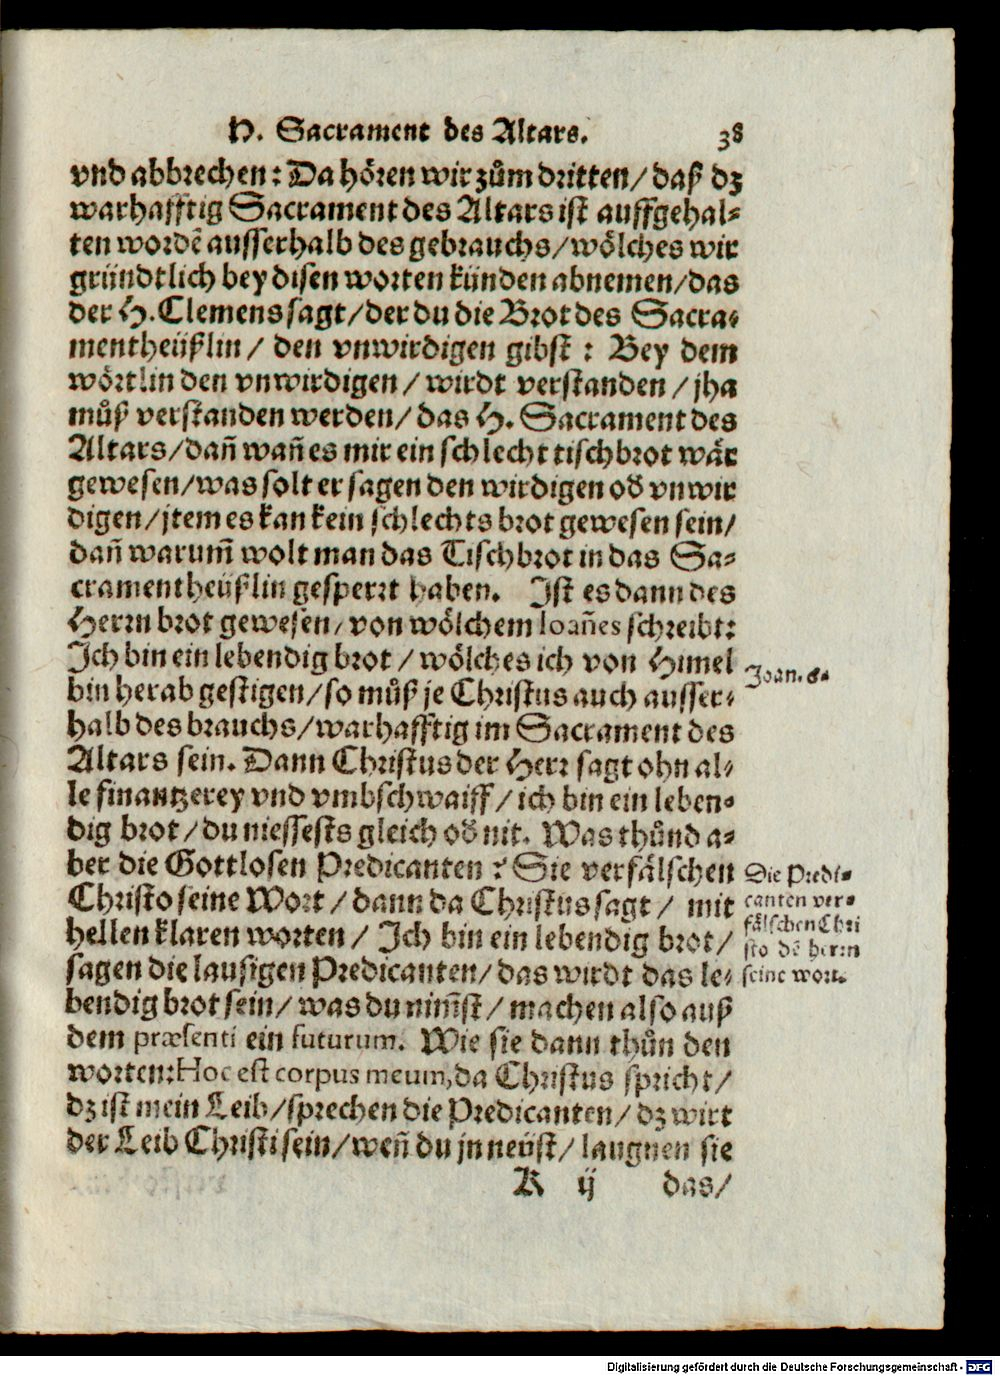 H. Sacrament des Altars. 38
vnd abbrechen: Da hören wir zům dritten/ daß dz
warhafftig Sacrament des Altars ist auffgehal⸗
ten wordẽ ausserhalb des gebrauchs/ wölches wir
gründtlich bey disen worten künden abnemen/ das
der H. Clemens sagt/ der du die Brot des Sacra⸗
mentheüßlin/ den vnwirdigen gibst: Bey dem
wörtlin den vnwirdigen/ wirdt verstanden/ jha
můß verstanden werden/ das H. Sacrament des
Altars/ dañ wañ es mir ein schlecht tischbrot wär
gewesen/ was solt er sagen den wirdigen od vnwir
digen/ jtem es kan kein schlechts brot gewesen sein/
dañ warum̃ wolt man das Tischbrot in das Sa⸗
cramentheüßlin gesperrt haben. Ist es dann des
Herrn brot gewesen/ von wölchem Ioañes schreibt:
Ich bin ein lebendig brot/ wölches ich von Himel
Joan. 6.
bin herab gestigen/ so můß je Christus auch ausser⸗
halb des brauchs/ warhafftig im Sacrament des
Altars sein. Dann Christus der Herr sagt ohn al⸗
le finantzerey vnd vmbschwaiff/ ich bin ein leben⸗
dig brot/ du niessests gleich od nit. Was thůnd a⸗
ber die Gottlosen Predicanten? Sie verfälschen
Christo seine Wort/ dann da Christus sagt/ mit
hellen klaren worten/ Ich bin ein lebendig brot/
Die Predi⸗
canten ver⸗
fälschen Chri
sto dẽ herrn
seine wort.
sagen die lausigen Predicanten/ das wirdt das le⸗
bendig brot sein/ was du nim̃st/ machen also auß
dem præsenti ein futurum. Wie sie dann thůn den
worten: Hoc est corpus meum, da Christus spricht/
dz ist mein Leib/ sprechen die Predicanten/ dz wirt
der Leib Christi sein/ weñ du jn neüst/ laugnen sie
K ij das/
Digitalisierung gefördert durch die Deutsche Forschungsgemeinschaft - DFG